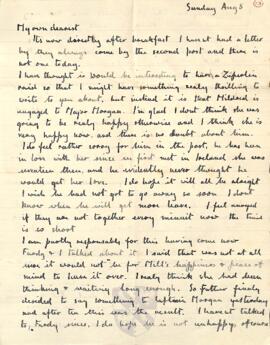 Sunday Aug 8
My own dearest
Its now directly after breakfast I havent had a letter
by they always come by the second post and there is
not one today.
I have thought it would be interesting to have a Zepolin
raid so that I might have something really thrilling to
write to you about, but instead it is that Mildred is
engaged to Major Morgan. I'm glad I dont think she was
going to be really happy otherwise and I think she is
very happy now and there is no doubt about him.
I do feel rather sorry for him in the past, he has been
in love with her since he first met in Ireland she was
seventeen then, and he evidently never thought he
would get her love. I do hope it will be alright
I wish he had not to go away so soon I dont
know when he will get more leave. I feel annoyed
if they are not together every minute now the time
is so short
I am partly responsible for this having come now
Fardy & I talked about it I said that was not at all
use it would not be for Mill's happiness & peace of
mind to leave it over. I really think she had been
thinking & waiting long enough. So Father finally
decided to say something to Captain Morgan yesterday
and after tea this was the result. I havent talked
to Fardy since. I do hope he is not unhappy, of course